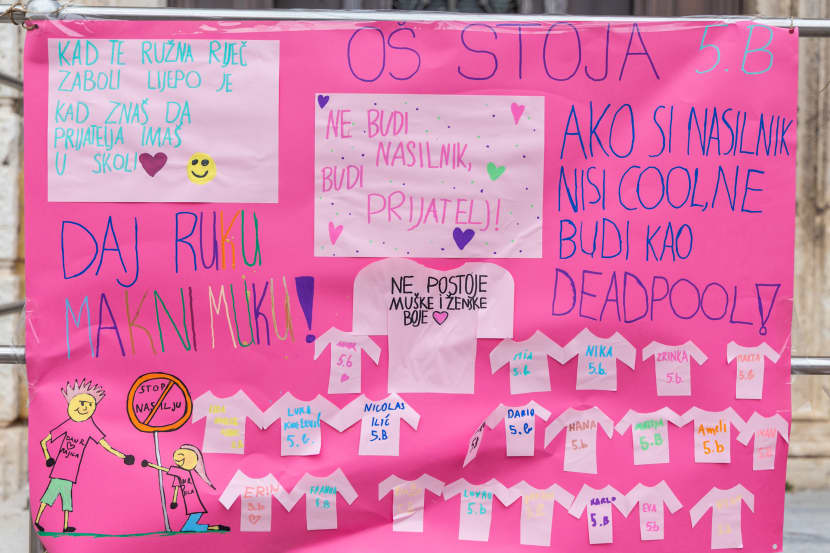 OŠ STOJA 5.B
KAD TE RUŽNA RIJEČ
ZABOLI LIJEPO JE
KAD ZNAŠ DA
PRIJATELJA IMAŠ
U ŠKOLI
NE BUDI
NASILNIK,
BUDI
PRIJATELJ!
AKO SI NASILNIK
NISI COOL, NE
BUDI KAO
DEADPOOL!
DAJ RUKU
MAKNI MUKU!
NE POSTOJE
MUŠKE I ŽENSKE
BOJE
STOP
NASILJU
5.b
MIA
5.b
NIKA
5.b.
ZRINKA
5.b.
MARTA
5.b
LUKA
5.b.
NICOLAS
ILIĆ
5.B
DARIO
5.b.
HANA
5.b
5.B
Ameli
5.b
ERIN
5.b
5.B
LOVRO
5.b
KARLO
5.B
EVA
5.b